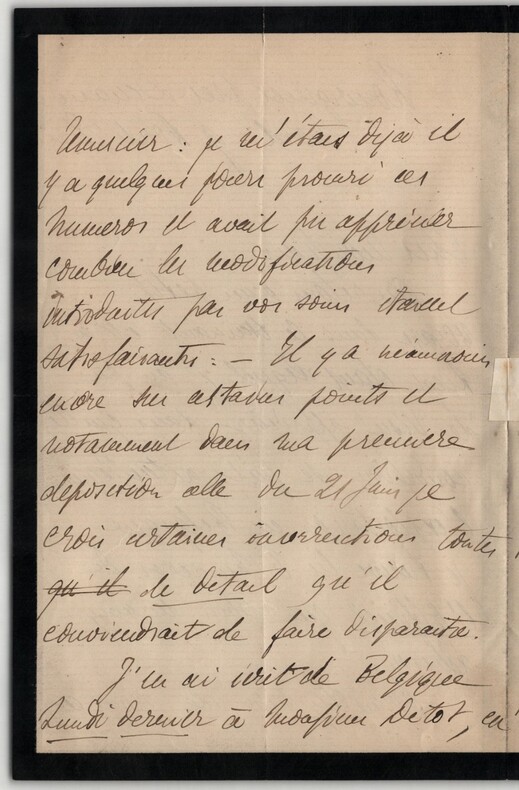 remercier : je m'étais déjà il
y a quelques jours procuré ces
numeros et avait pu apprécier
combien les modifications
introduites par vos soins étaient
satisfaisantes : — Il y a néanmoins
encore sur certains points et
notamment dans ma première
deposition celle du 21 Juin je
crois certaines incorrections toutes
qu'il de détail qu'il
conviendrait de faire disparaitre.
J'en ai écrit de Belgique
Lundi dernier à Monsieur Détot, en